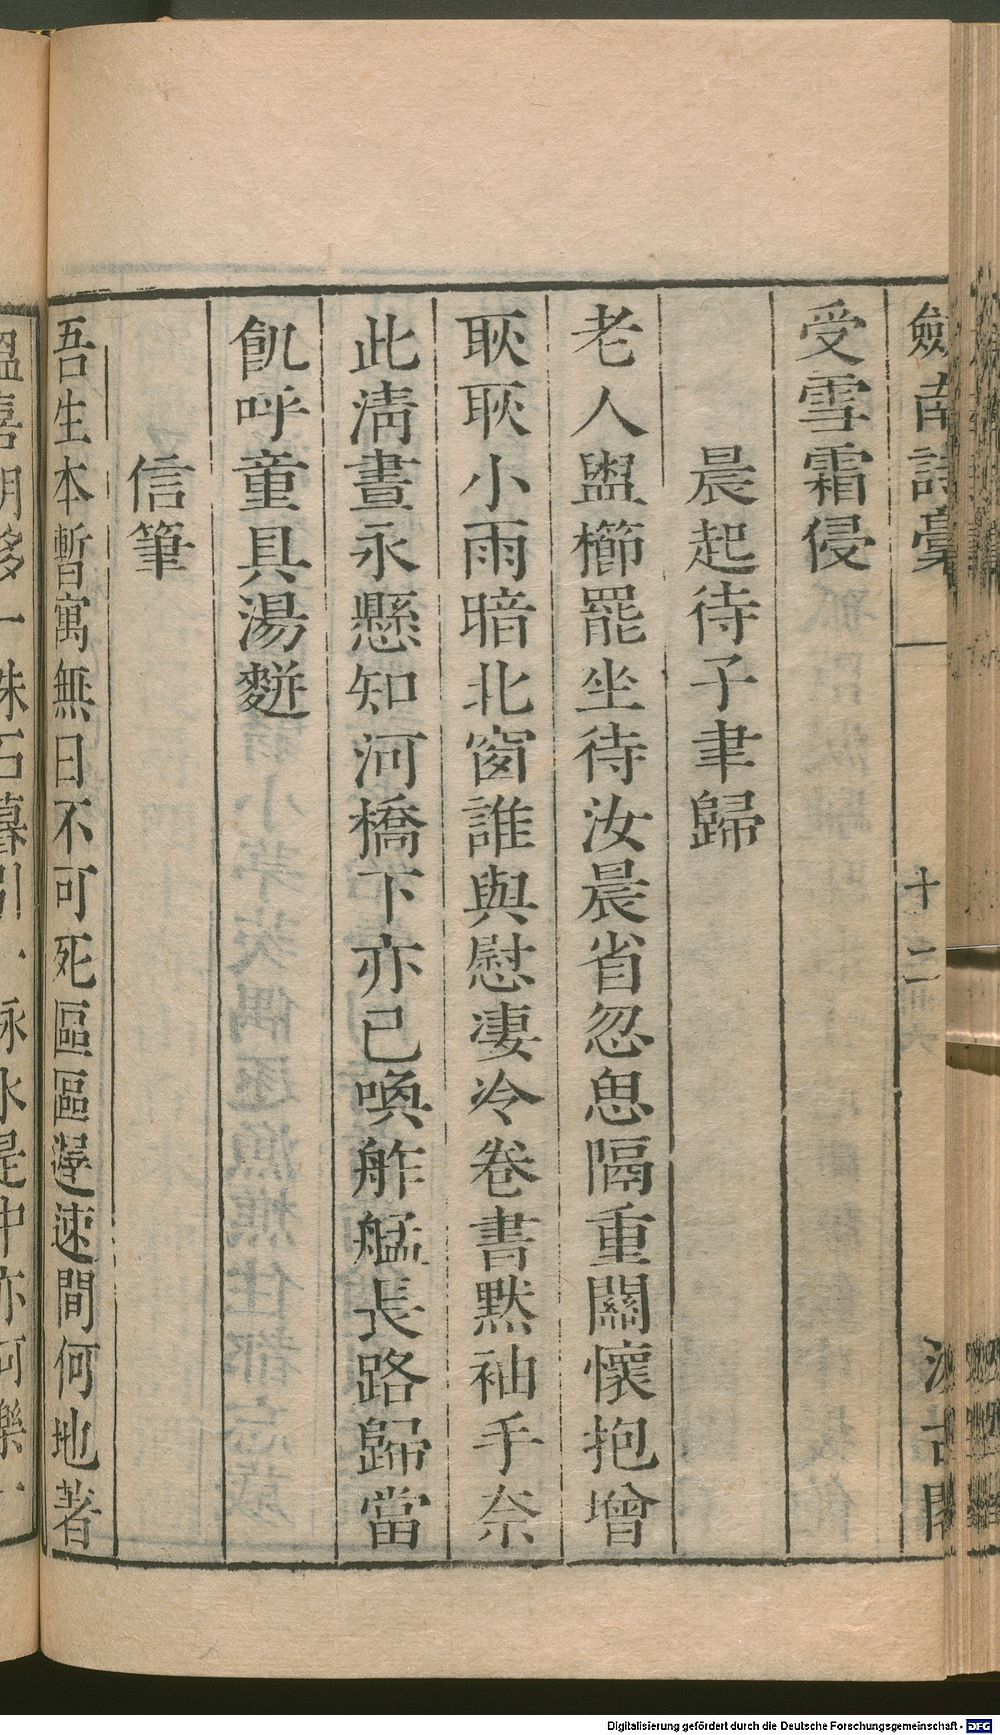 劔南詩藁
十二
汲古閣
受雪霜侵
晨起待子聿歸
老人盥櫛罷坐待汝晨省忽思隔重關懷抱增
耿耿小雨暗北窗誰與慰凄冷卷書默袖手奈
此淸晝永懸知河橋下亦已喚舴艋長路歸當
飢呼童具湯麩
信筆
吾生本暫寓無日不可死區區遲速間何地著
Digitalisierung gefördert durch die Deutsche Forschungsgemeinschaft - DFG